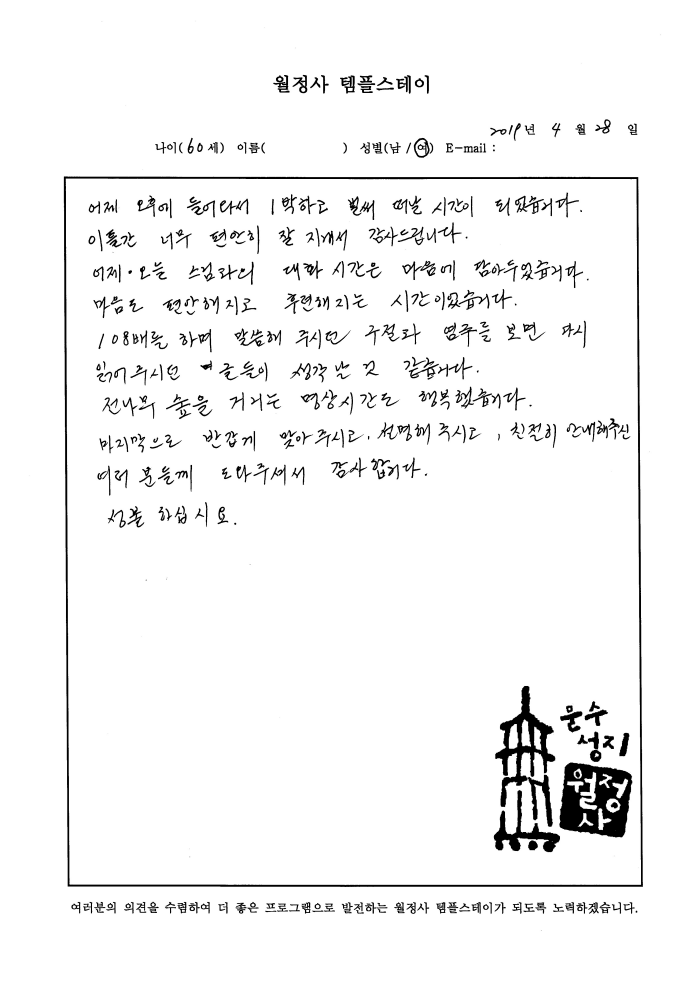 월정사 템플스테이
2019년 4월 28일
나이(60세) 이름( ) 성별(남/여) E-mail :
어제 오후에 들어와서 1박하고 벌써 떠날 시간이 되었습니다.
이틀간 너무 편안히 잘 지내서 감사드립니다.
어제·오늘 스님과의 대화 시간은 마음에 담아두었습니다.
마음도 편안해지고 후련해지는 시간이었습니다.
108배를 하며 말씀해 주시던 구절과 염주를 보면 다시
읽어주시던 글들이 생각날 것 같습니다.
전나무 숲을 거니는 명상시간도 행복했습니다.
마지막으로 반갑게 맞아주시고, 설명해 주시고, 친절히 안내해주신
여러 분들께 도와주셔서 감사합니다.
성불 하십시요.
문수
성지
월정
사
여러분의 의견을 수렴하여 더 좋은 프로그램으로 발전하는 월정사 템플스테이가 되도록 노력하겠습니다.